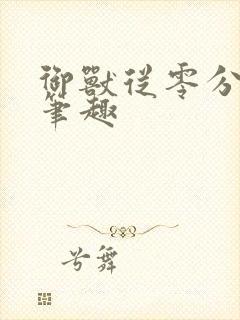 御獸從零分
筆趣
兮舞